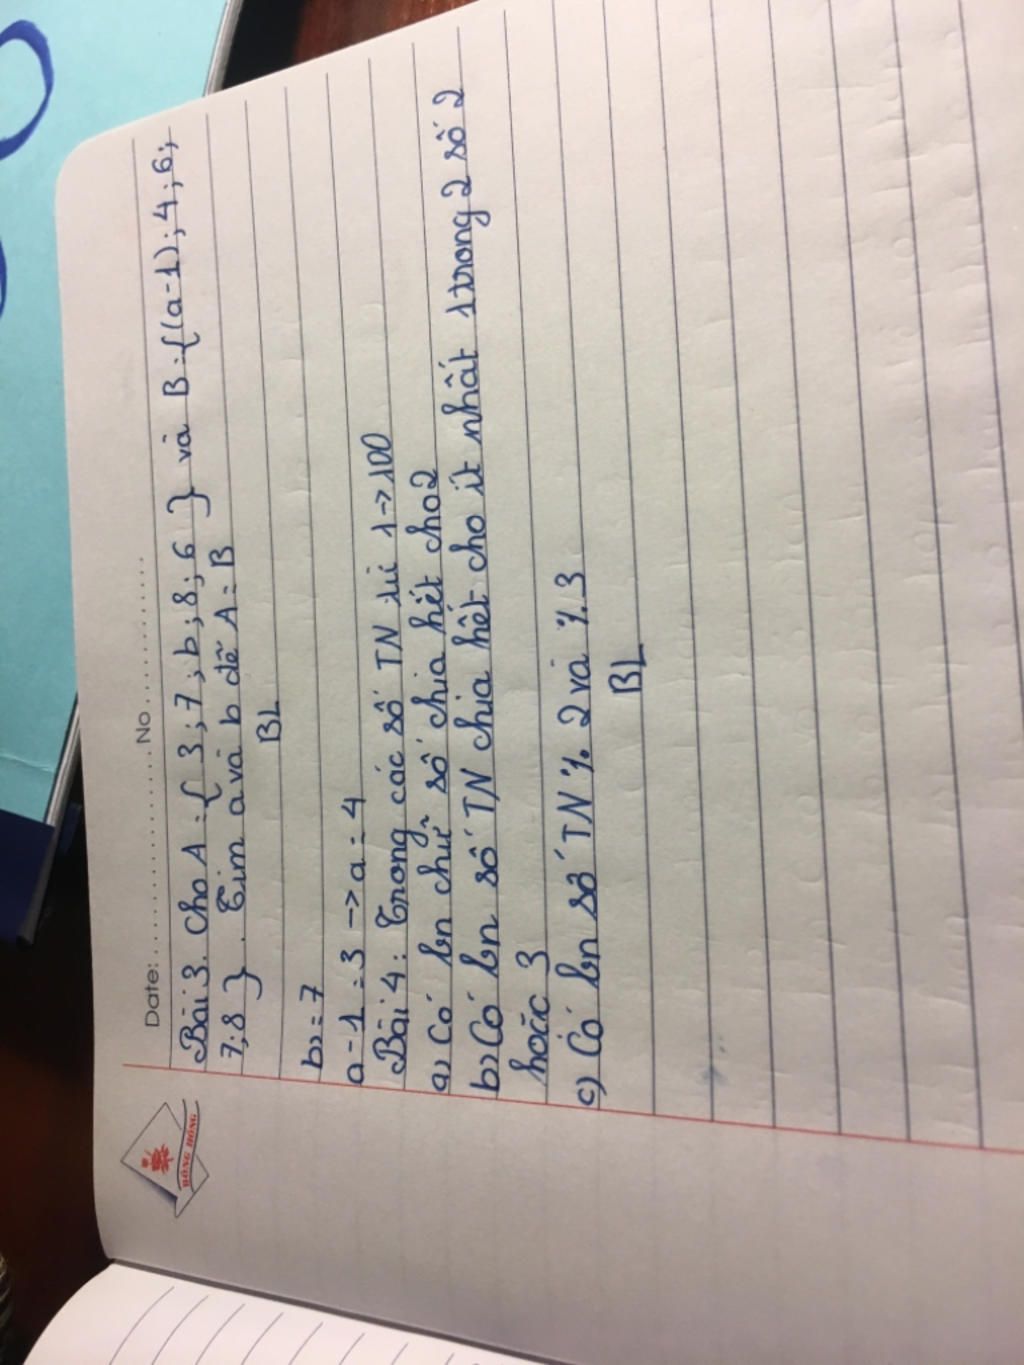 Date: ............................ No ............................
Bài 3. Cho A = { 3 ; 7 ; b ; 8 ; 6 } và B = {(a-1) ; 4 ; 6 ;
7 ; 8 } . Tìm a và b để A = B
BL
b = 7
a - 1 = 3 -> a = 4
Bài 4 : Trong các số TN từ 1 -> 100
a) Có bn chữ số chia hết cho 2
b) Có bn số TN chia hết cho ít nhất 1 trong 2 số 2
hoặc 3
c) Có bn số TN ⋮ 2 và ⋮ 3
BL
HỒNG